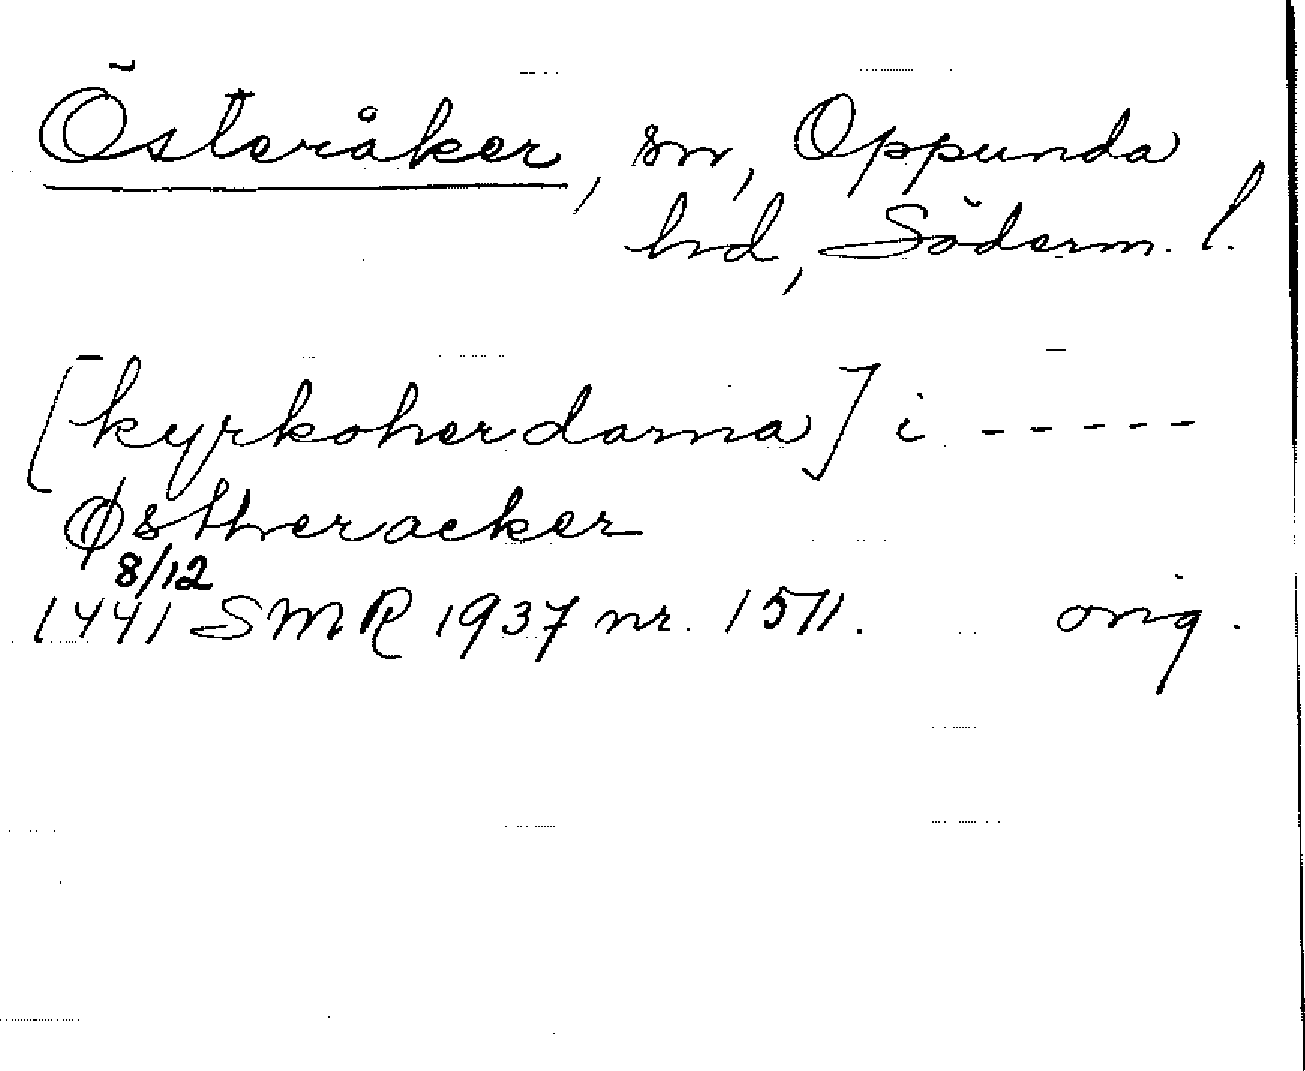 Österåker, sn, Oppunda
hd, Söderm. l.
[kyrkoherdarna] i - - - - -
Østheraeker
8/12
1441 SMR 1937 nr. 1511. orig.